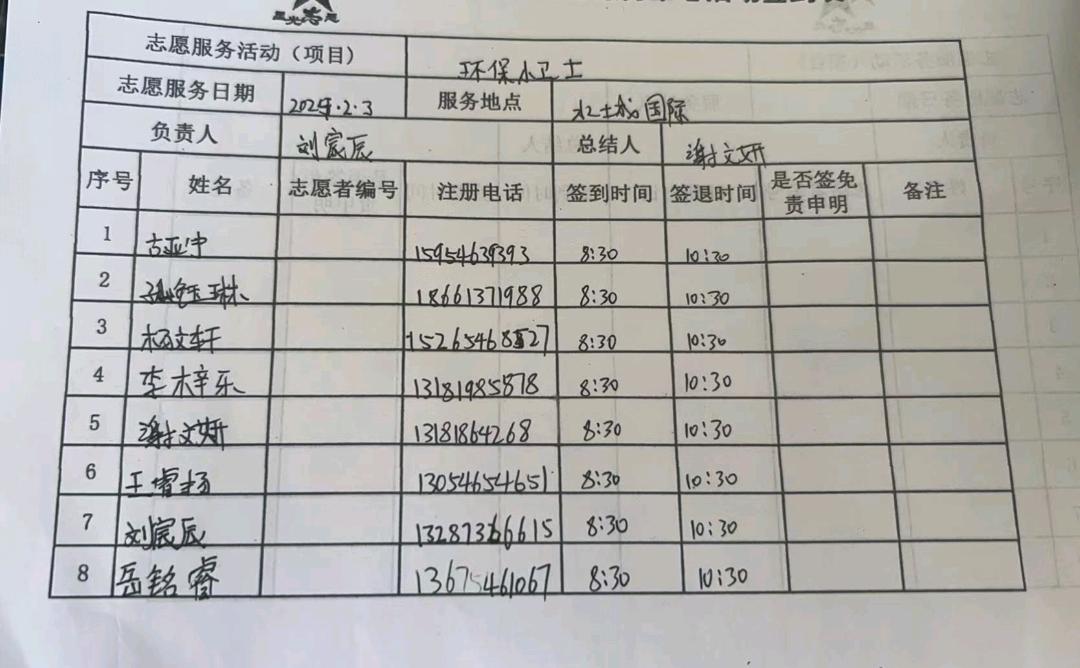 星光志愿
志愿服务活动（项目） 环保小卫士
志愿服务日期 2025.2.3 服务地点 国际
负责人 刘宸辰 总结人 谢文妍
序号 姓名 志愿者编号 注册电话 签到时间 签退时间 是否签免责申明 备注
1 古亚宁 15954639393 8:30 10:30
2 孙钰琳 18661371988 8:30 10:30
3 杨文轩 15265468527 8:30 10:30
4 李梓乐 13181985878 8:30 10:30
5 谢文妍 13181864268 8:30 10:30
6 王睿扬 13054654651 8:30 10:30
7 刘宸辰 13287366615 8:30 10:30
8 岳铭睿 13675461067 8:30 10:30